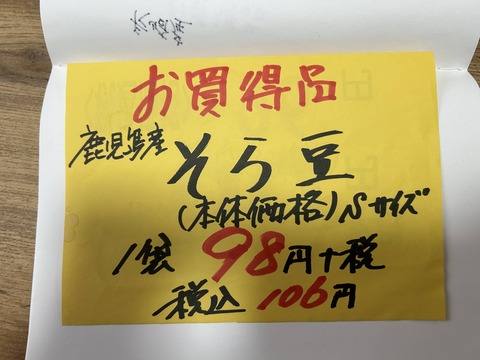 お買得品
鹿児島産
そら豆
(本体価格)Sサイズ
1袋 98円+税
税込 106円